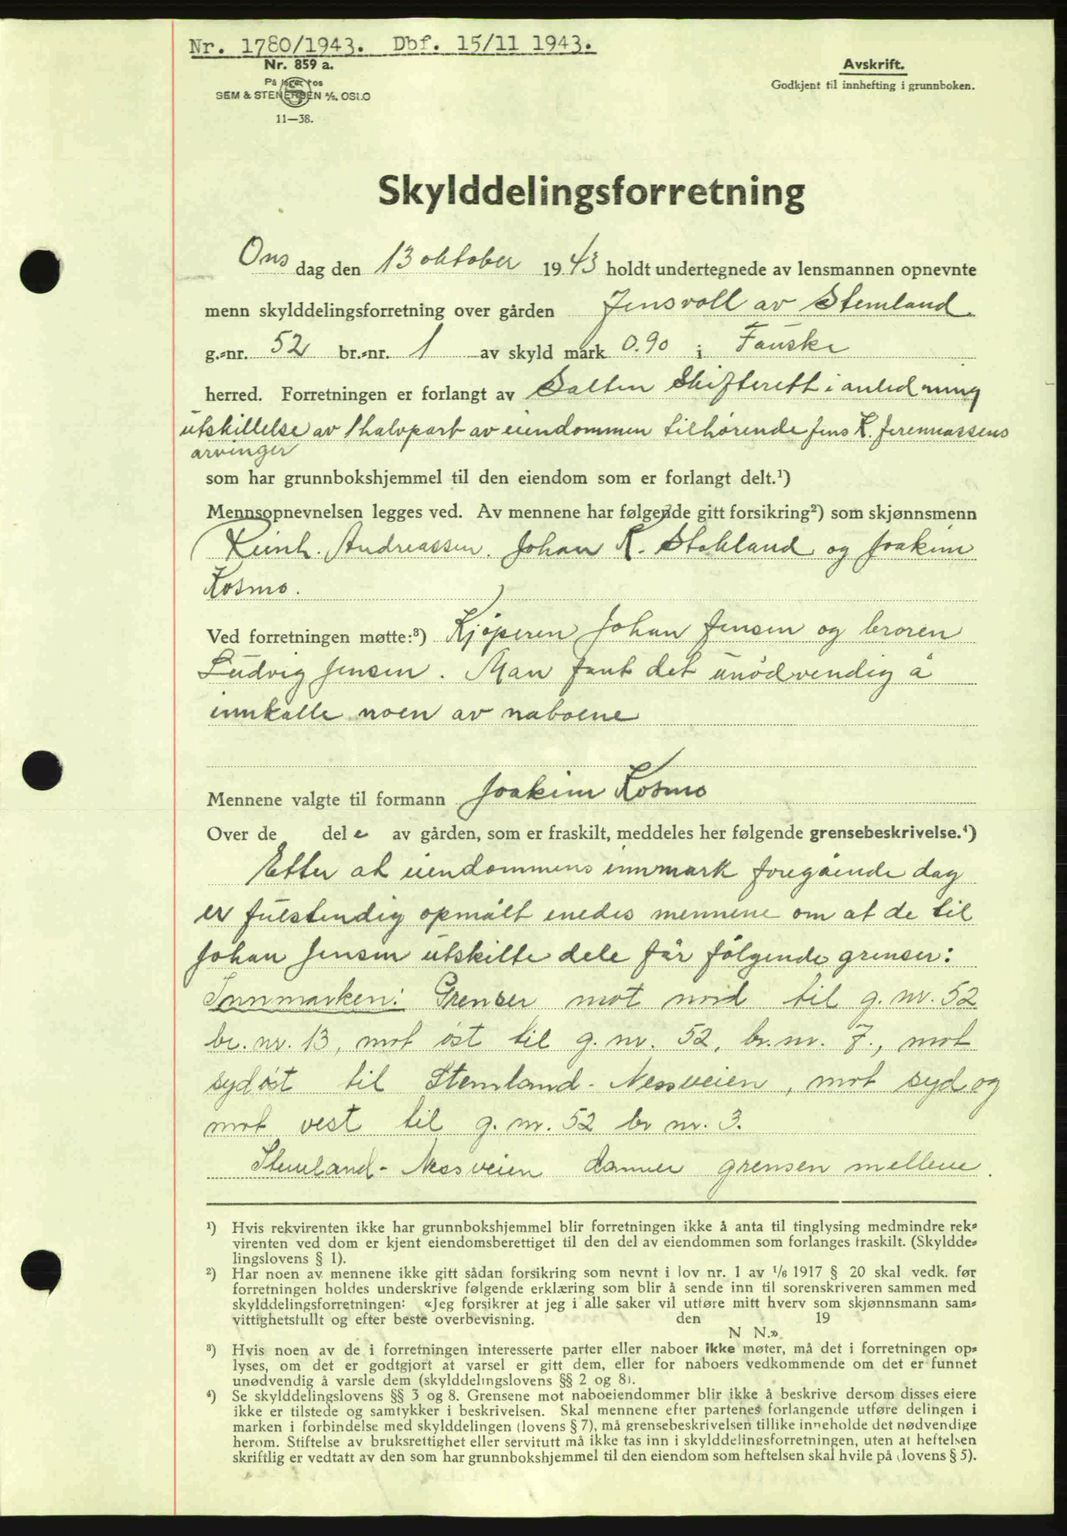 Nr. 1780/1943. Dbf. 15/11 1943.
Nr. 859 a.
På lager hos
SEM & STENERSEN A/S, OSLO
11—38.
Avskrift.
Godkjent til innhefting i grunnboken.
Skylddelingsforretning
Ons dag den 13 oktober 1943 holdt undertegnede av lensmannen opnevnte
menn skylddelingsforretning over gården Jensvoll av Stemland
g.-nr. 52 br.-nr. 1 av skyld mark 0.90 i Fauske
herred. Forretningen er forlangt av Salten Skifterett i anledning
utskillelse av 1 halvpart av eiendommen tilhørende Jens K. Jeremiassens
arvinger
som har grunnbokshjemmel til den eiendom som er forlangt delt.¹)
Mennsopnevnelsen legges ved. Av mennene har følgende gitt forsikring²) som skjønnsmenn
Reinh. Andreassen. Johan K. Stokland og Joakim
Kosmo.
Ved forretningen møtte:³) Kjøperen Johan Jensen og broren
Ludvig Jensen. Man fant det unødvendig å
innkalle noen av naboene
Mennene valgte til formann Joakim Kosmo
Over de del e av gården, som er fraskilt, meddeles her følgende grensebeskrivelse.⁴)
Etter at eiendommens innmark foregående dag
er fulstendig opmålt enedes mennene om at de til
Johan Jensen utskilte dele får følgende grenser:
Innmarken: Grenser mot nord til g. nr. 52
br. nr. 13, mot øst til g. nr. 52, br. nr. 7., mot
sydøst til Stemland - Nesveien, mot syd og
mot vest til g. nr. 52 br nr. 3.
Stemland - Nesveien danner grensen mellem.
¹) Hvis rekvirenten ikke har grunnbokshjemmel blir forretningen ikke å anta til tinglysing medmindre rek-
virenten ved dom er kjent eiendomsberettiget til den del av eiendommen som forlanges fraskilt. (Skyldde-
lingslovens § 1).
²) Har noen av mennene ikke gitt sådan forsikring som nevnt i lov nr. 1 av 1/6 1917 § 20 skal vedk. før
forretningen holdes underskrive følgende erklæring som blir å sende inn til sorenskriveren sammen med
skylddelingsforretningen: «Jeg forsikrer at jeg i alle saker vil utføre mitt hverv som skjønnsmann sam-
vittighetsfullt og efter beste overbevisning. den 19
N N.»
³) Hvis noen av de i forretningen interesserte parter eller naboer ikke møter, må det i forretningen op-
lyses, om det er godtgjort at varsel er gitt dem, eller for naboers vedkommende om det er funnet
unødvendig å varsle dem (skylddelingslovens §§ 2 og 8).
⁴) Se skylddelingslovens §§ 3 og 8. Grensene mot naboeiendommer blir ikke å beskrive dersom disses eiere
ikke er tilstede og samtykker i beskrivelsen. Skal mennene efter partenes forlangende utføre delingen i
marken i forbindelse med skylddelingen (lovens § 7), må grensebeskrivelsen tillike inneholde det nødvendige
herom. Stiftelse av bruksrettighet eller servitutt må ikke tas inn i skylddelingsforretningen, uten at heftelsen
skriftlig er vedtatt av den som har grunnbokshjemmel til den eiendom som heftelsen skal hvile på (lovens § 5).